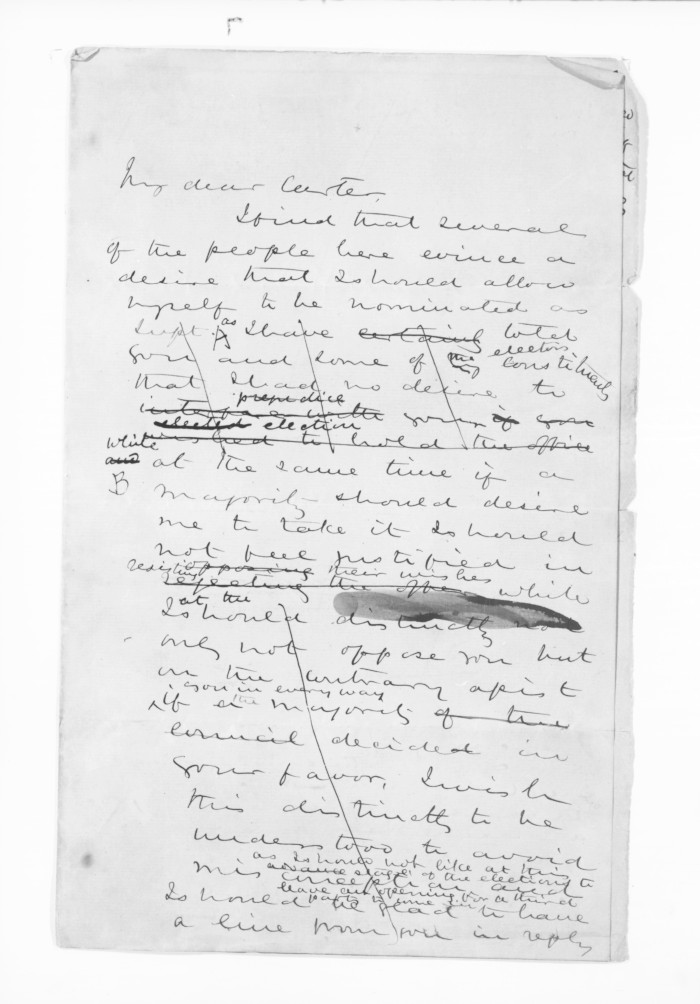 My dear Carter,
I find that several
of the people here evince a
desire that I should allow
myself to be nominated as
Supt. as I have certainly told
you and some of the electors constituents
that I had no desire to
prejudice
interfere with your if you
elected election
wished to hold the office
while
and at the same time if a
B majority should desire
me to take it I should
not feel justified in
resisting opposing their wishes
rejecting the offer, while
at the
I should distinctly not
only not oppose you but
on the contrary assist
you in every way
if a the majority of the
council decided in
your favor, I wish
this distinctly to be
understood to avoid
as I should not like at this
advance stage of the election to
misconception and
leave an opening for a third
party to come in
I should be glad to have
a line from you in reply